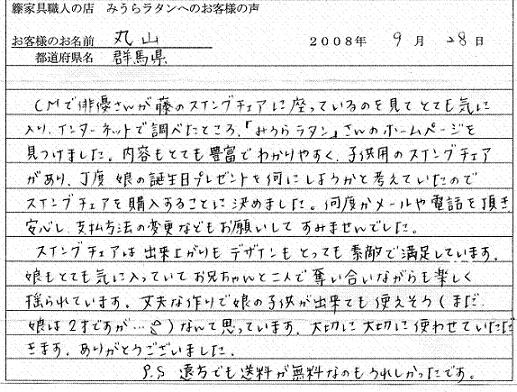 籐家具職人の店 みうらラタンへのお客様の声
お客様のお名前 丸山 2008年 9月 28日
都道府県名 群馬県
CMで俳優さんが藤のスイングチェアに座っているのを見てとても気に
入り、インターネットで調べたところ、「みうらラタン」さんのホームページを
見つけました。内容もとても豊富でわかりやすく、子供用のスイングチェア
があり、丁度 娘の誕生日プレゼントを何にしようかと考えていたので
スイングチェアを購入することに決めました。何度かメールや電話を頂き
安心し、支払方法の変更などもお願いしてすみませんでした。
スイングチェアは出来上がりも デザインも とっても 素敵で満足しています。
娘もとても気に入っていて お兄ちゃんと二人で 奪い合いながらも楽しく
揺られています。丈夫な作りで娘の子供が出来ても使えそう(まだ
娘は2才ですが…)なんて思っています。大切に大切に使わせていただ
きます。ありがとうございました。
P.S 遠方でも送料が無料なのもうれしかったです。